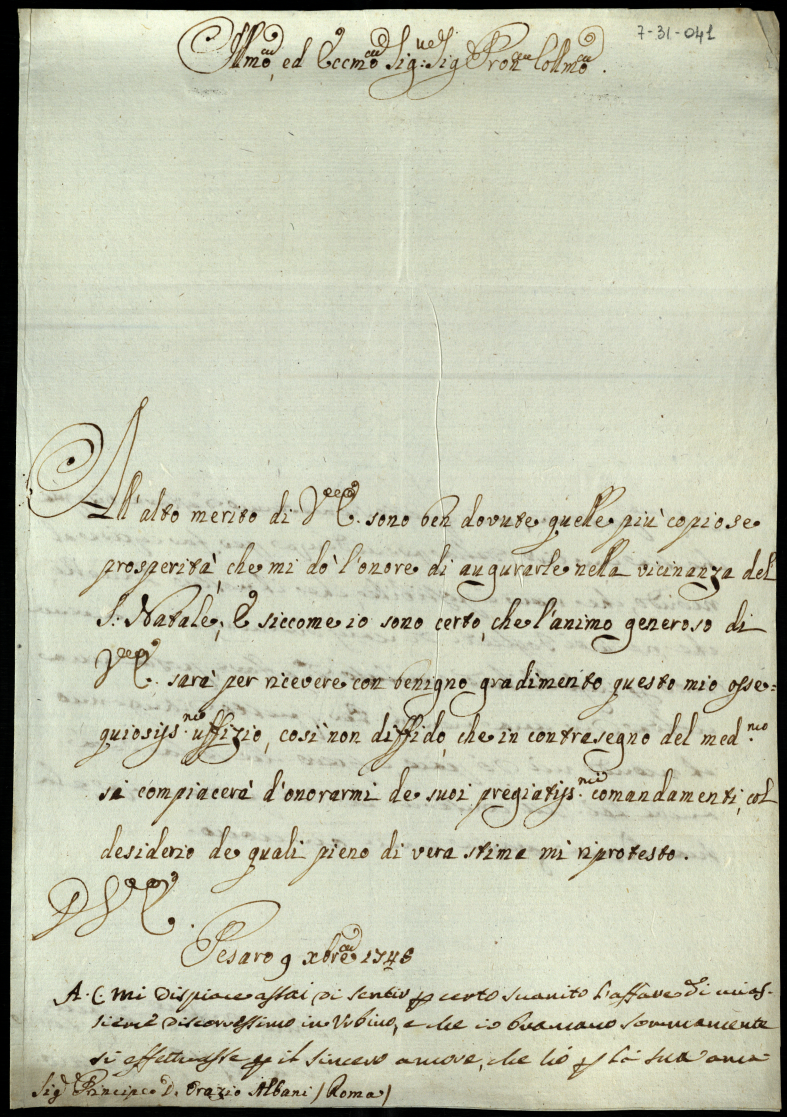 7-31-041
Illmo, ed Eccmo Sig: Sig Pron Collmo.
All'alto merito di V. E. sono ben dovute quelle più copiose
prosperità, che mi dò l'onore di augurarle nella vicinanza del
S. Natale; E siccome io sono certo, che l'animo generoso di
V. E. sarà per ricevere con benigno gradimento questo mio osse=
quiosiss.mo uffizio, così non diffido, che in contrasegno del med.mo
si compiacerà d'onorarmi de suoi pregiatiss.mi comandamenti, col
desiderio de quali pieno di vera stima mi riprotesto.
D V. E.
Pesaro 9 xbre 1746
mi dispiace assai di sentir p certo suanito l'affare di cui as-
sieme discorressimo in Urbino, e che io bramavo sommamente
si effettuasse p il sincero amore, che hò p la sua
Sig. Principe D. Orazio Albani (Roma)